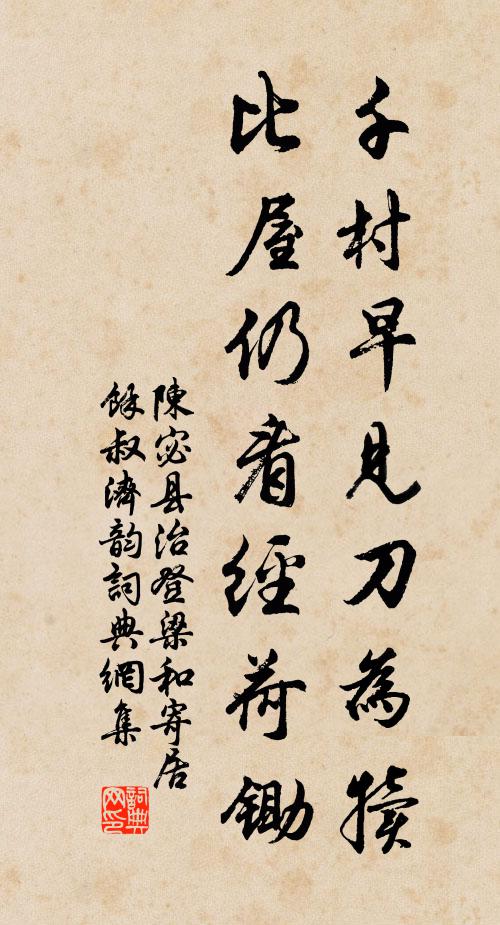 千村早見刀為犢
比屋仍看經荷鋤
陳宓县治登梁和寄居
餘叔濟韵詞典網集
詞典网印